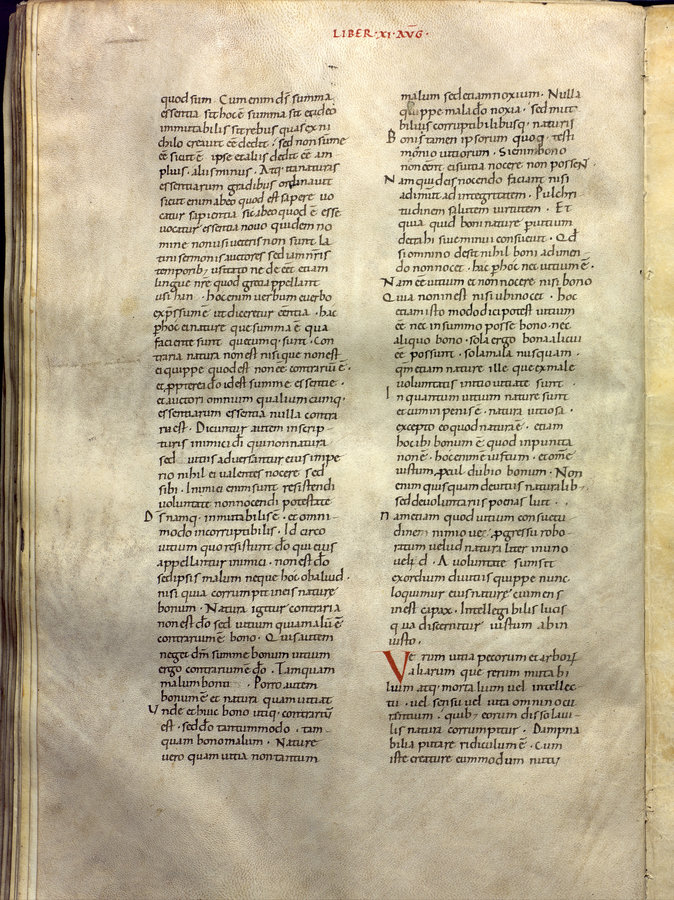 LIBER·XI·AVG·
quod sum Cum enim dṡ summa
essentia sit hoc ē summa sit et ideo
inmutabilis sit rebus quas ex ni
chilo creavit ēē dedit · sed non sūme
ēē sicut ē ipse et aliis dedit ēē am
plius · aliis minus · Atq; ita naturas
essentiarum gradibus ordinavit
sicut enim ab eo quod est sapere vo
catur sapientia sic ab eo quod ē esse
vocatur essentia novo quidem no
mine non usi veteris non sunt la
tini sermonis auctores sed iam nr̄is
temporib; usitato ne deēēt etiam
lingue nr̄e quod greci appellant
usian · hoc enim verbum e verbo
exp̄ssum ē ut diceretur eēntia · hac
p̄ hoc ei nature que summa ē qua
faciente sunt quecumq; sunt · Con
traria natura non est nisi que non est
ei quippe quod est non ēē contrariū ē ·
et p̄pterea dō id est summe essentie ·
et auctori omnium qualiumcumq;
essentiarum essentia nulla contra
ria est · Dicuntur autem in scrip
turis inimici dī qui non natura
sed vitiis adversantur eius impe
rio nihil ei valentes nocere sed
sibi · Inimici enim sunt resistendi
voluntate non nocendi potestate
Dṡ namq; inmutabilis ē · et omni
modo incorruptibilis · Id circo
vitium quo resistunt dō qui eius
appellantur inimici · non est dō
sed ipsis malum neque hoc ob aliud ·
nisi quia corrumpit in eis nature
bonum · Natura igitur contraria
non est dō sed vitium quia malū ē
contrarium ē bono · Quis autem
neget dm̄ summe bonum vitium
ergo contrarium ē dō · Tamquam
malum boni Porro autem
bonum ē et natura quam vitiat
Unde et huic bono utiq; contrariū
est · sed dō tantummodo · tam
quam bono malum · Nature
vero quam vitiat non tantum
malum sed etiam noxium · Nulla
quippe mala dō noxia · sed muta
bilius corruptibilibusq; naturis
Bonis tamen ipsorum quoq; testi
monio vitiorum · Si enim bono
non eēnt eis vitia nocere non possent ·
Nam quid eis nocendo faciunt nisi
adimunt ad integritatem · Pulchri
tudinem salutem virtutem · Et
quia quid boni nature p̄ vitium
detrahi sive minui consuevit · Qd̄
si omnino desit nihil boni adimen
do non nocet · hac p̄ hoc nec vitium ē ·
Nam ēē vitium et non nocere nisi bono
Quia non inest nisi ubi nocet · hoc
etiam isto modo dici potest vitium
ēē nec in summo posse bono · nec
aliquo bono · sola ergo bona alicui
ēē possunt · sola mala nusquam ·
qm̄ etiam nature ille que ex male
voluntatis initio vitiate sunt
In quantum vitium nature sunt
et cum in penis ē · natura vitiosa ·
excepto eo quod natura ē · etiam
hoc ibi bonum ē quod inpunita
non ē · hoc enim ē iustum · et om̄e
iustum p̄cul dubio bonum · Non
enim quisquam de vitiis naturalib;
sed de voluntariis poenas luit · ·
Nam etiam quod vitium consuetu
dine nimio ve p̄gressu robo
ratum velud naturaliter inino
levit · A voluntate sumsit
exordium de vitiis quippe nunc
loquimur eius nature cui mens
inest capax · Intellegibilis lucis
qua discernitur iustum ab in
iusto ·
Verum vitia pecorum et arborū
aliarum que rerum mutabi
lium atq; mortalium vel intellec
tu · vel sensu vel vita omnino ca
rentium · quib; eorum dissolubi
lis natura corrumpitur · Dampna
bilia putare ridiculum ē · Cum
iste creature eum modum nutu